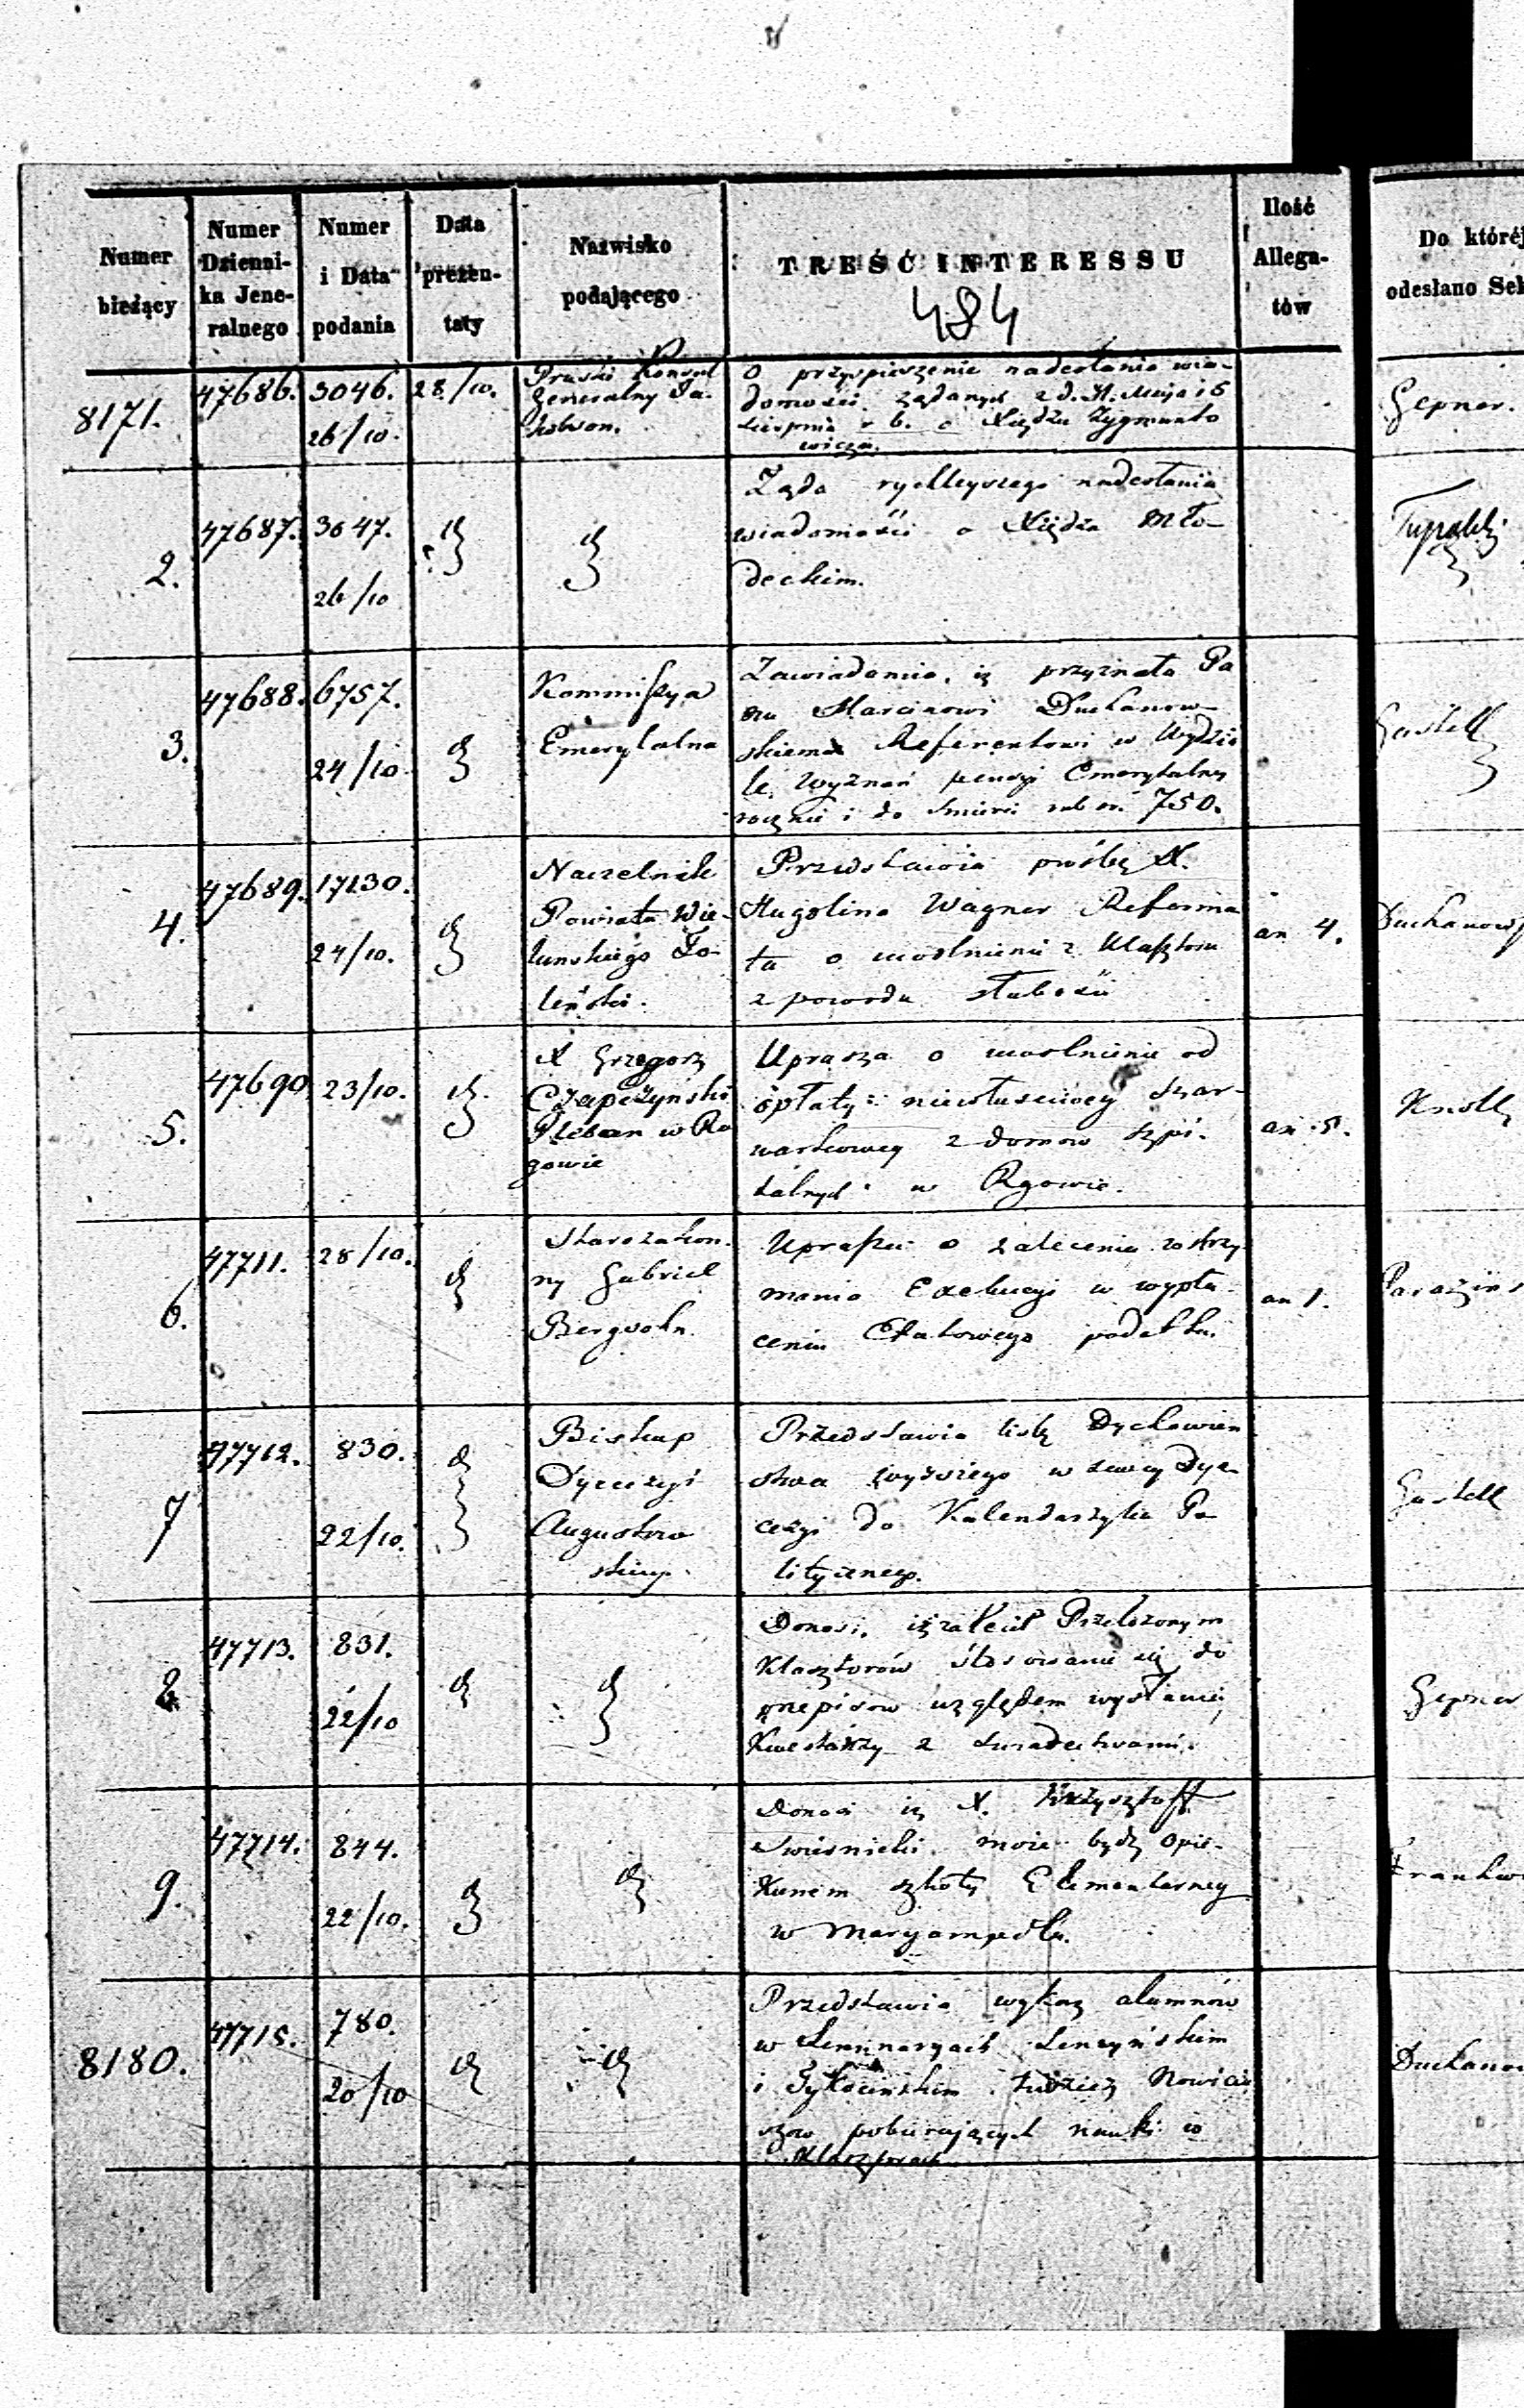 Numer bieżący
Numer Dziennika Jeneralnego
Numer i Data podania
Data prezentaty
Nazwisko podającego
TREŚĆ INTERESSU
484
Ilość Allegatów
Do któréj
odesłano Sek
8171.
47686.
3046.
26/10.
28/10.
Pruski Konsul
Generalny Ja-
kobson.
O przyspieszenie nadesłania wia-
domości żądanych z d. 31. Maja i 6
sierpnia r b. o Xiędzu Zygmunto
wiczu.
Gepner.
2.
47687.
3047.
26/10
Żąda rychleyszego nadesłania
wiadomości o Xiędzu Mło-
deckim.
3.
47688.
6757.
24/10
Kommissya
Emerytalna
Zawiadamia, iż przyznała Pa
nu Marcinowi Duchanow-
skiemu Referentowi w Wydzia
le Wyznań pensyi Emerytalney
rocznie i do śmierci rub sr. 750.
Gastell
4.
47689.
17130.
24/10.
Naczelnik
Powiatu Wie-
luńskiego
Przedstawia prośbę X.
Hugolina Wagner Reforma
ta o uwolnienie z Klasztoru
z powodu słabości
an 4.
Duchanows
5.
47690
23/10.
X Grzegorz
Czapczyński
Pleban w Rzgowie
Uprasza o uwolnienie od
opłaty niewłaściwey szar-
warkowey z domow szpi-
talnych w Rzgowie.
an 5.
Knoll
6.
47711.
28/10.
Starozakon-
ny Gabriel
Bergsohn.
Uprasza o zalecenie wstrzy-
mania Exekucyi w wypła-
ceniu Etatowego podatku.
an 1.
7
47712.
830.
22/10.
Biskup
Dyecezyi
Augustow
skiey.
Przedstawia listę Duchowień
stwa wyższego w swey Dye-
cezyi do Kalendarzyka Po
litycznego.
Gastell
8
47713.
831.
22/10
Donosi, iż zalecił Przełożonym
Klasztorów stosowanie się do
przepisow względem wysłania
Kwestarzy z świadectwami.
Gepner
9.
47714.
844.
22/10.
Donosi iż X. Krzysztoff
może być Opie-
kunem szkoły Elementarney
w Maryampolu.
8180.
47715.
780.
20/10
Przedstawia wykaz alumnów
w Seminaryach Seneyńskim
i Tykocińskim tudzież Nowicyu
szow pobierających nauki w
Klasztorach
Duchanow